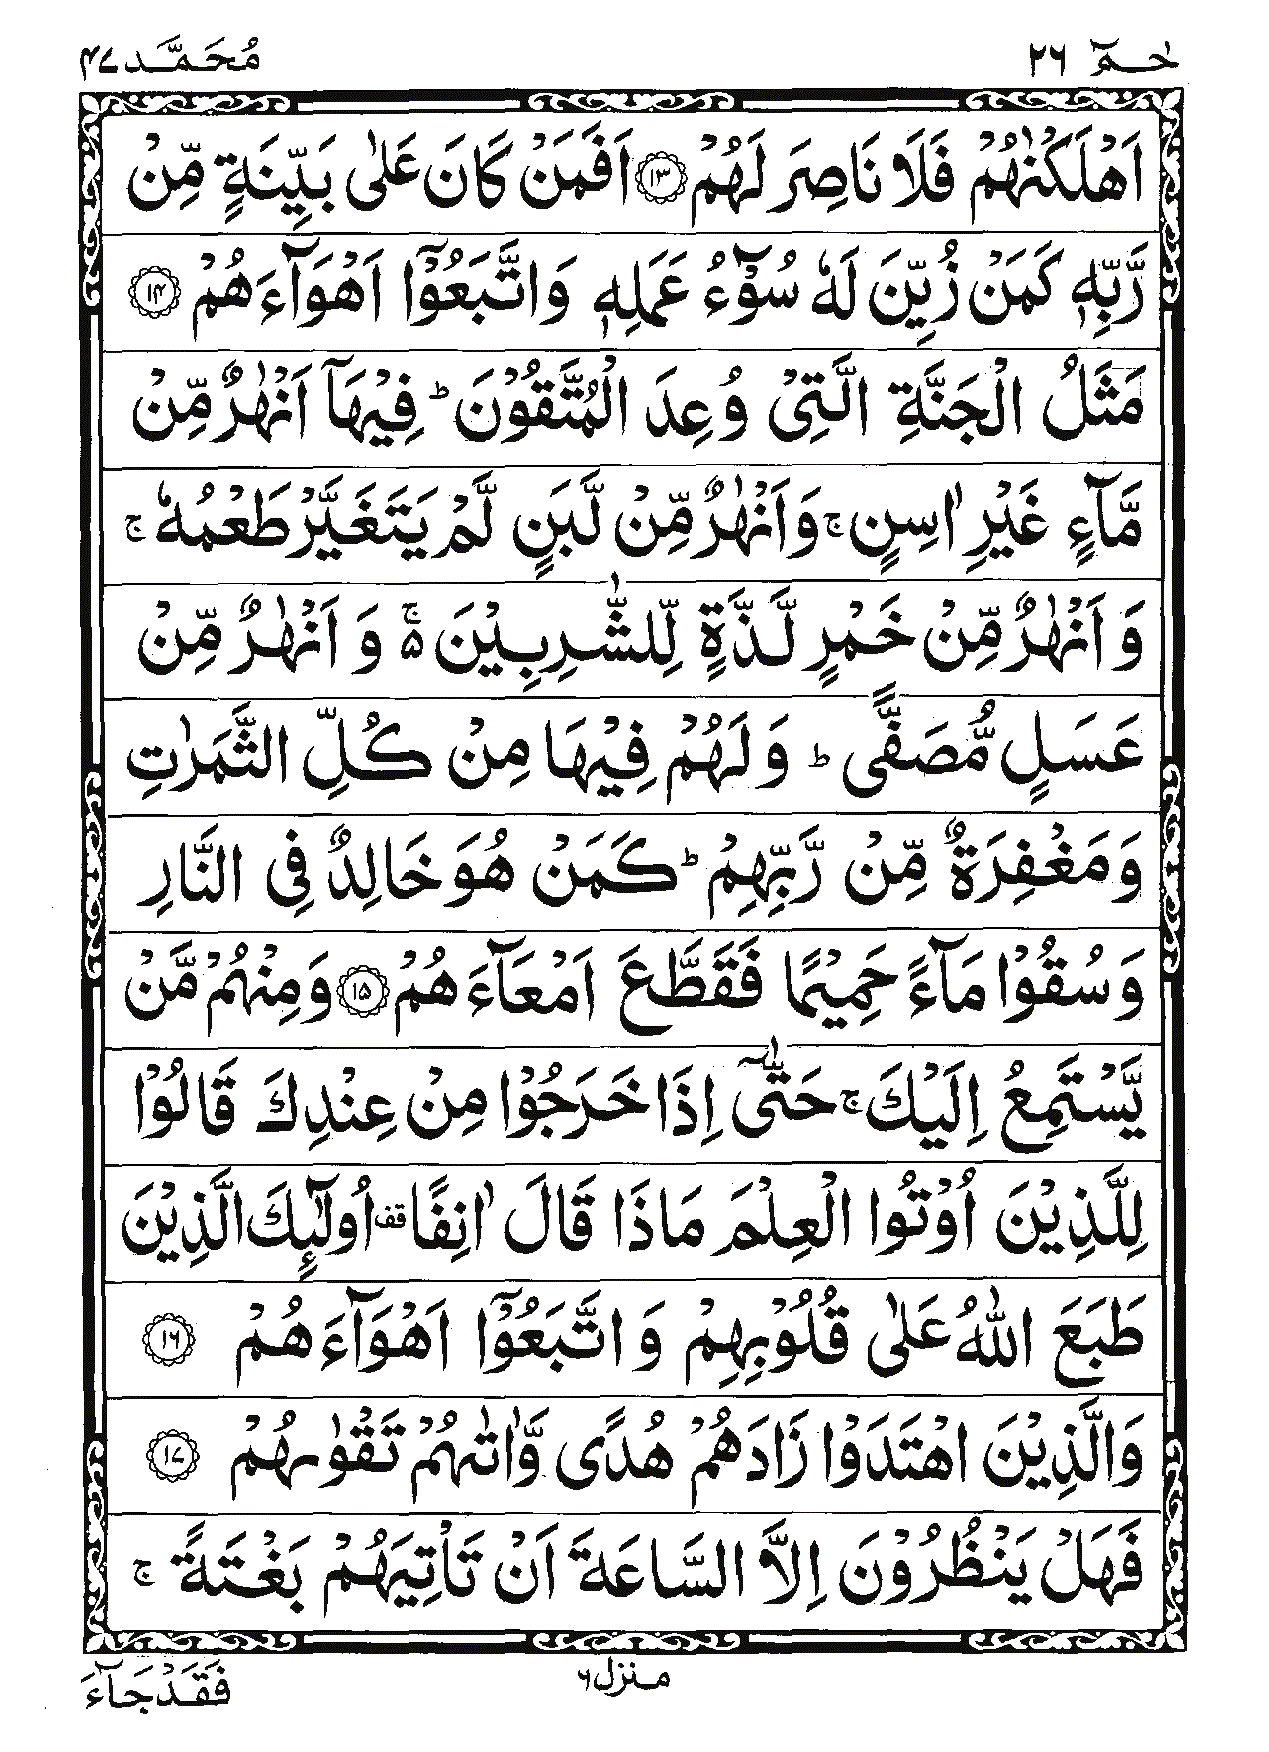 حٰـمٓ ٢٦ مُحَمَّد ٤٧
اَهْلَكْنٰهُمْ فَلَا نَاصِرَ لَهُمْ ﴿۱۳﴾ اَفَمَنْ كَانَ عَلٰى بَيِّنَةٍ مِّنْ
رَّبِّهٖ كَمَنْ زُيِّنَ لَهٗ سُوْٓءُ عَمَلِهٖ وَاتَّبَعُوْٓا اَهْوَآءَهُمْ ﴿۱۴﴾
مَثَلُ الْجَنَّةِ الَّتِىْ وُعِدَ الْمُتَّقُوْنَ ؕ فِيْهَآ اَنْهٰرٌ مِّنْ
مَّآءٍ غَيْرِ اٰسِنٍ ۚ وَاَنْهٰرٌ مِّنْ لَّبَنٍ لَّمْ يَتَغَيَّرْ طَعْمُهٗ ۚ
وَ اَنْهٰرٌ مِّنْ خَمْرٍ لَّذَّةٍ لِّلشّٰرِبِيْنَ ۵ۚ وَ اَنْهٰرٌ مِّنْ
عَسَلٍ مُّصَفًّى ؕ وَ لَهُمْ فِيْهَا مِنْ كُلِّ الثَّمَرٰتِ
وَمَغْفِرَةٌ مِّنْ رَّبِّهِمْ ؕ كَمَنْ هُوَ خَالِدٌ فِى النَّارِ
وَسُقُوْا مَآءً حَمِيْمًا فَقَطَّعَ اَمْعَآءَهُمْ ﴿۱۵﴾ وَمِنْهُمْ مَّنْ
يَّسْتَمِعُ اِلَيْكَ ۚ حَتّٰٓى اِذَا خَرَجُوْا مِنْ عِنْدِكَ قَالُوْا
لِلَّذِيْنَ اُوْتُوا الْعِلْمَ مَاذَا قَالَ اٰنِفًا قف اُولٰٓئِكَ الَّذِيْنَ
طَبَعَ اللّٰهُ عَلٰى قُلُوْبِهِمْ وَ اتَّبَعُوْٓا اَهْوَآءَهُمْ ﴿۱۶﴾
وَالَّذِيْنَ اهْتَدَوْا زَادَهُمْ هُدًى وَّاٰتٰىهُمْ تَقْوٰىهُمْ ﴿۱۷﴾
فَهَلْ يَنْظُرُوْنَ اِلَّا السَّاعَةَ اَنْ تَاْتِيَهُمْ بَغْتَةً ۚ
منزل ٦
فَقَدْ جَآءَ